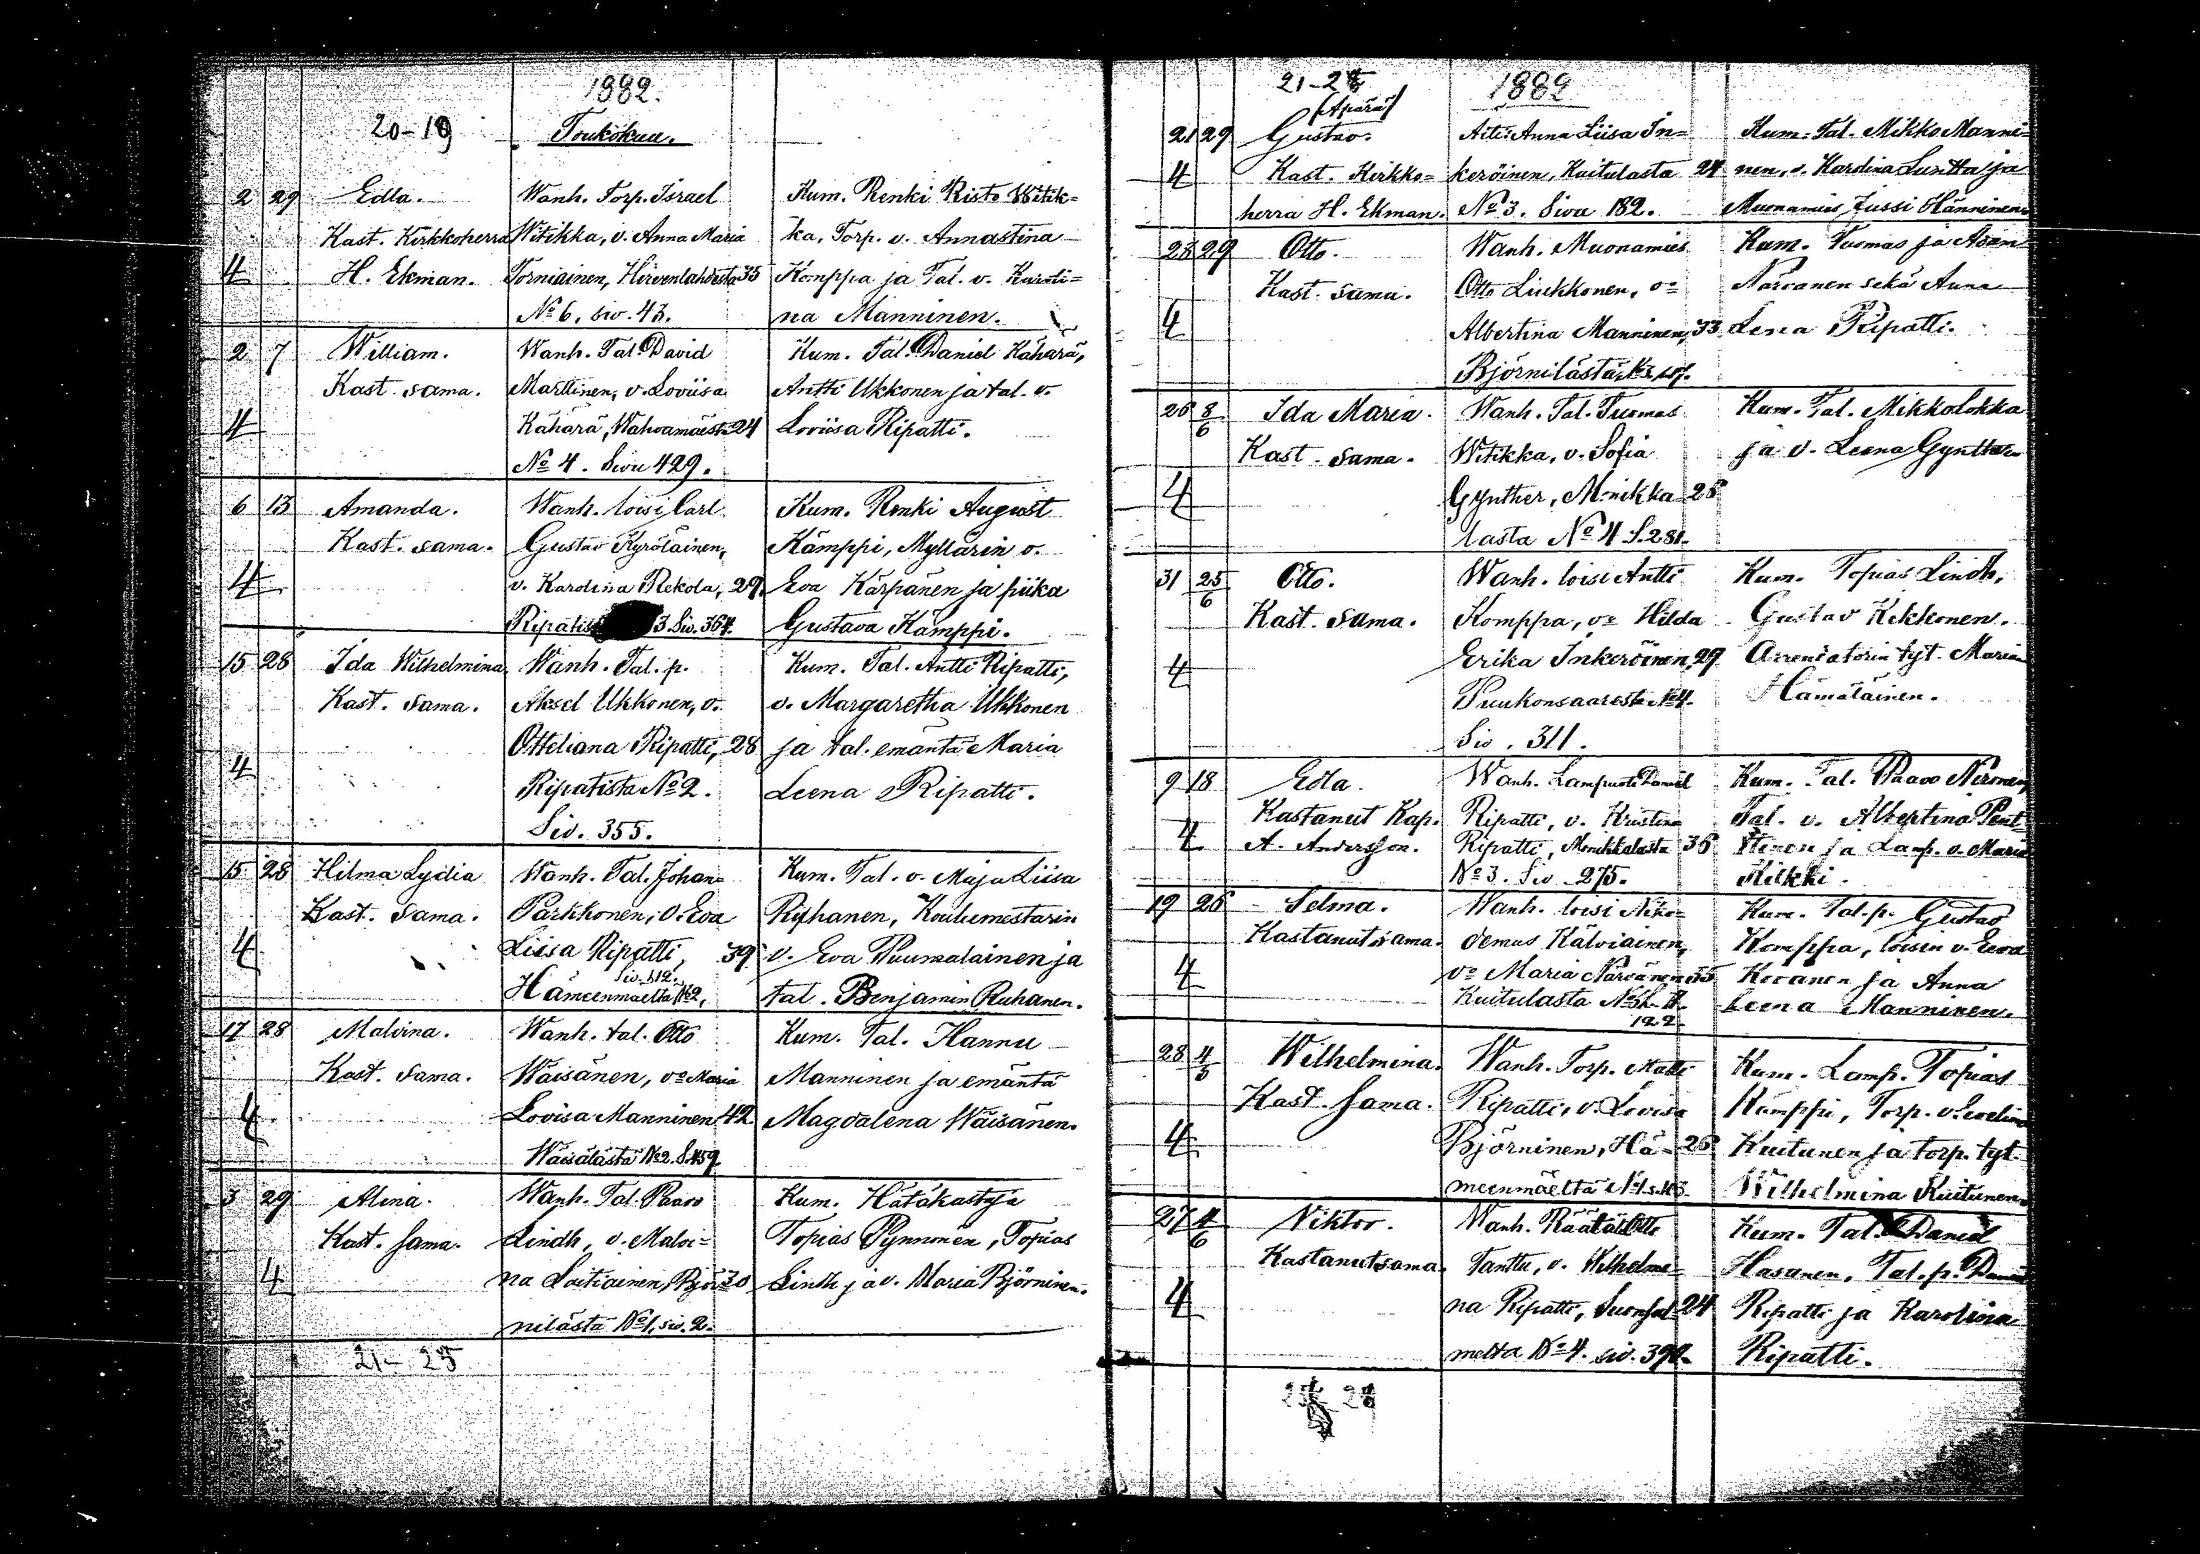 1882.
20-19 Toukokuu.
2 29 Edla. Wanh. Torp. Israel Kum. Renki Risto Witik=
Kast. Kirkkoherra Witikka, v. Anna Maria ka, Torp. v. Annastina
4 H. Ekman. Torniainen, Hirvenlahdesta 35 Komppa ja Tal. v. Karoli=
No 6, siv. 43. na Manninen.
2 7 William. Wanh. Tal. David Kum. Tal. Daniel Kähärä,
Kast. sama. Marttinen, v. Loviisa Antti Ukkonen ja tal. v.
4 Kähärä, Wahvamäestä 24 Loviisa Ripatti.
No 4. Sivu 429.
6 13 Amanda. Wanh. loisi Carl Kum. Renki August
Kast. sama. Gustav Kyröläinen, Kämppi, Myllärin v.
4 v. Karolina Rekola, 29. Eva Kärpänen ja piika
3 Siv. 364. Gustava Kämppi.
15 28 Ida Wilhelmina Wanh. Tal. p. Kum. Tal. Antti Ripatti,
Kast. sama. Aksel Ukkonen, v. v. Margaretha Ukkonen
Otteliana Ripatti, 28 ja tal. emäntä Maria
4 Ripatista No 2. Leena Ripatti.
Siv. 355.
15 28 Hilma Lydia Wanh. Tal. Johan Kum. Tal. v. Maja Liisa
Kast. sama. Parkkonen, v. Eva Ruhanen, Koulumestarin
4 Liisa Ripatti, 39 v. Eva Puumalainen ja
Siv. 112.
Hämeenmäeltä No 2, tal. Benjamin Ruhanen.
17 28 Malvina. Wanh. tal. Otto Kum. Tal. Hannu
Kast. sama. Wäisänen, vo Maria Manninen ja emäntä
4 Lovisa Manninen 42 Magdalena Wäisänen.
Wäisälästä No 2. S. 459.
3 29 Alina. Wanh. Tal. Paavo Kum. Hätäkastaja
Kast. sama. Lindh, v. Malvi= Topias Pynnönen, Topias
4 na Laitiainen, Björ= 30 Lindh ja v. Maria Björninen.
nilästä No 1, siv. 2.
21-25
21-28 1882
[Äpärä]
21 29 Gustav. Äiti: Anna Liisa In= Kum. Tal. Mikko Manni=
4 Kast. Kirkko= keröinen, Kuitulasta 24 nen, v. Karolina Suntta ja
herra H. Ekman. No 3. Sivu 182. Muonamies Jussi Hänninen.
23 29 Otto. Wanh. Muonamies Kum. Tuomas ja
Kast. sama. Otto Liukkonen, vo Närvänen sekä Anna
4 Albertina Manninen, 33 Leena Ripatti.
Björnilästä
26 8/6 Ida Maria. Wanh. Tal. Tuomas Kum. Tal. Mikko Lokka
Kast. sama. Witikka, v. Sofia ja v. Leena Gynther
4 Gynther, Monikka= 28
lasta No 4 S. 281.
31 25/6 Otto. Wanh. loisi Antti Kum. Topias Lindh,
Kast. sama. Komppa, vo Hilda Gustav Kekkonen.
4 Erika Inkeröinen, 29 Arrentatorin tyt. Maria
Puukonsaaresta No 4. Hämäläinen.
Siv. 311.
9 18 Edla. Wanh. Lampuoti Daniel Kum. Tal. Paavo Nironen,
Kastanut Kap. Ripatti, v. Kristina Tal. v. Albertina Pent=
4 A. Andersson. Ripatti, Monikkalasta 36 tinen ja Lamp. v. Maria
No 3. Siv. 275. Hilkki.
19 26 Selma. Wanh. loisi Niko= Kum. Tal. p. Gustav
Kastanut sama. demus Kälviäinen, Komppa, loisin v. Eeva
4 vo Maria Närvänen 35 Kovanen ja Anna
Kuitulasta Leena Manninen.
28 4/5 Wilhelmina. Wanh. Torp. Matti Kum. Lamp. Topias
Kast. sama. Ripatti, v. Lovisa Kämppi, Torp. v. Evelina
4 Björninen, Hä= 26 Kuitunen ja torp. tyt.
meenmäeltä Wilhelmina Kuitunen.
27 4/6 Viktor. Wanh. Räätäli Otto Kum. Tal. Daniel
Kastanut sama. Tanttu, v. Wilhelmi= Hasanen, Tal. p. Daniel
4 na Ripatti, Suonsal= 24 Ripatti ja Karolina
melta No 4. siv. 392. Ripatti.